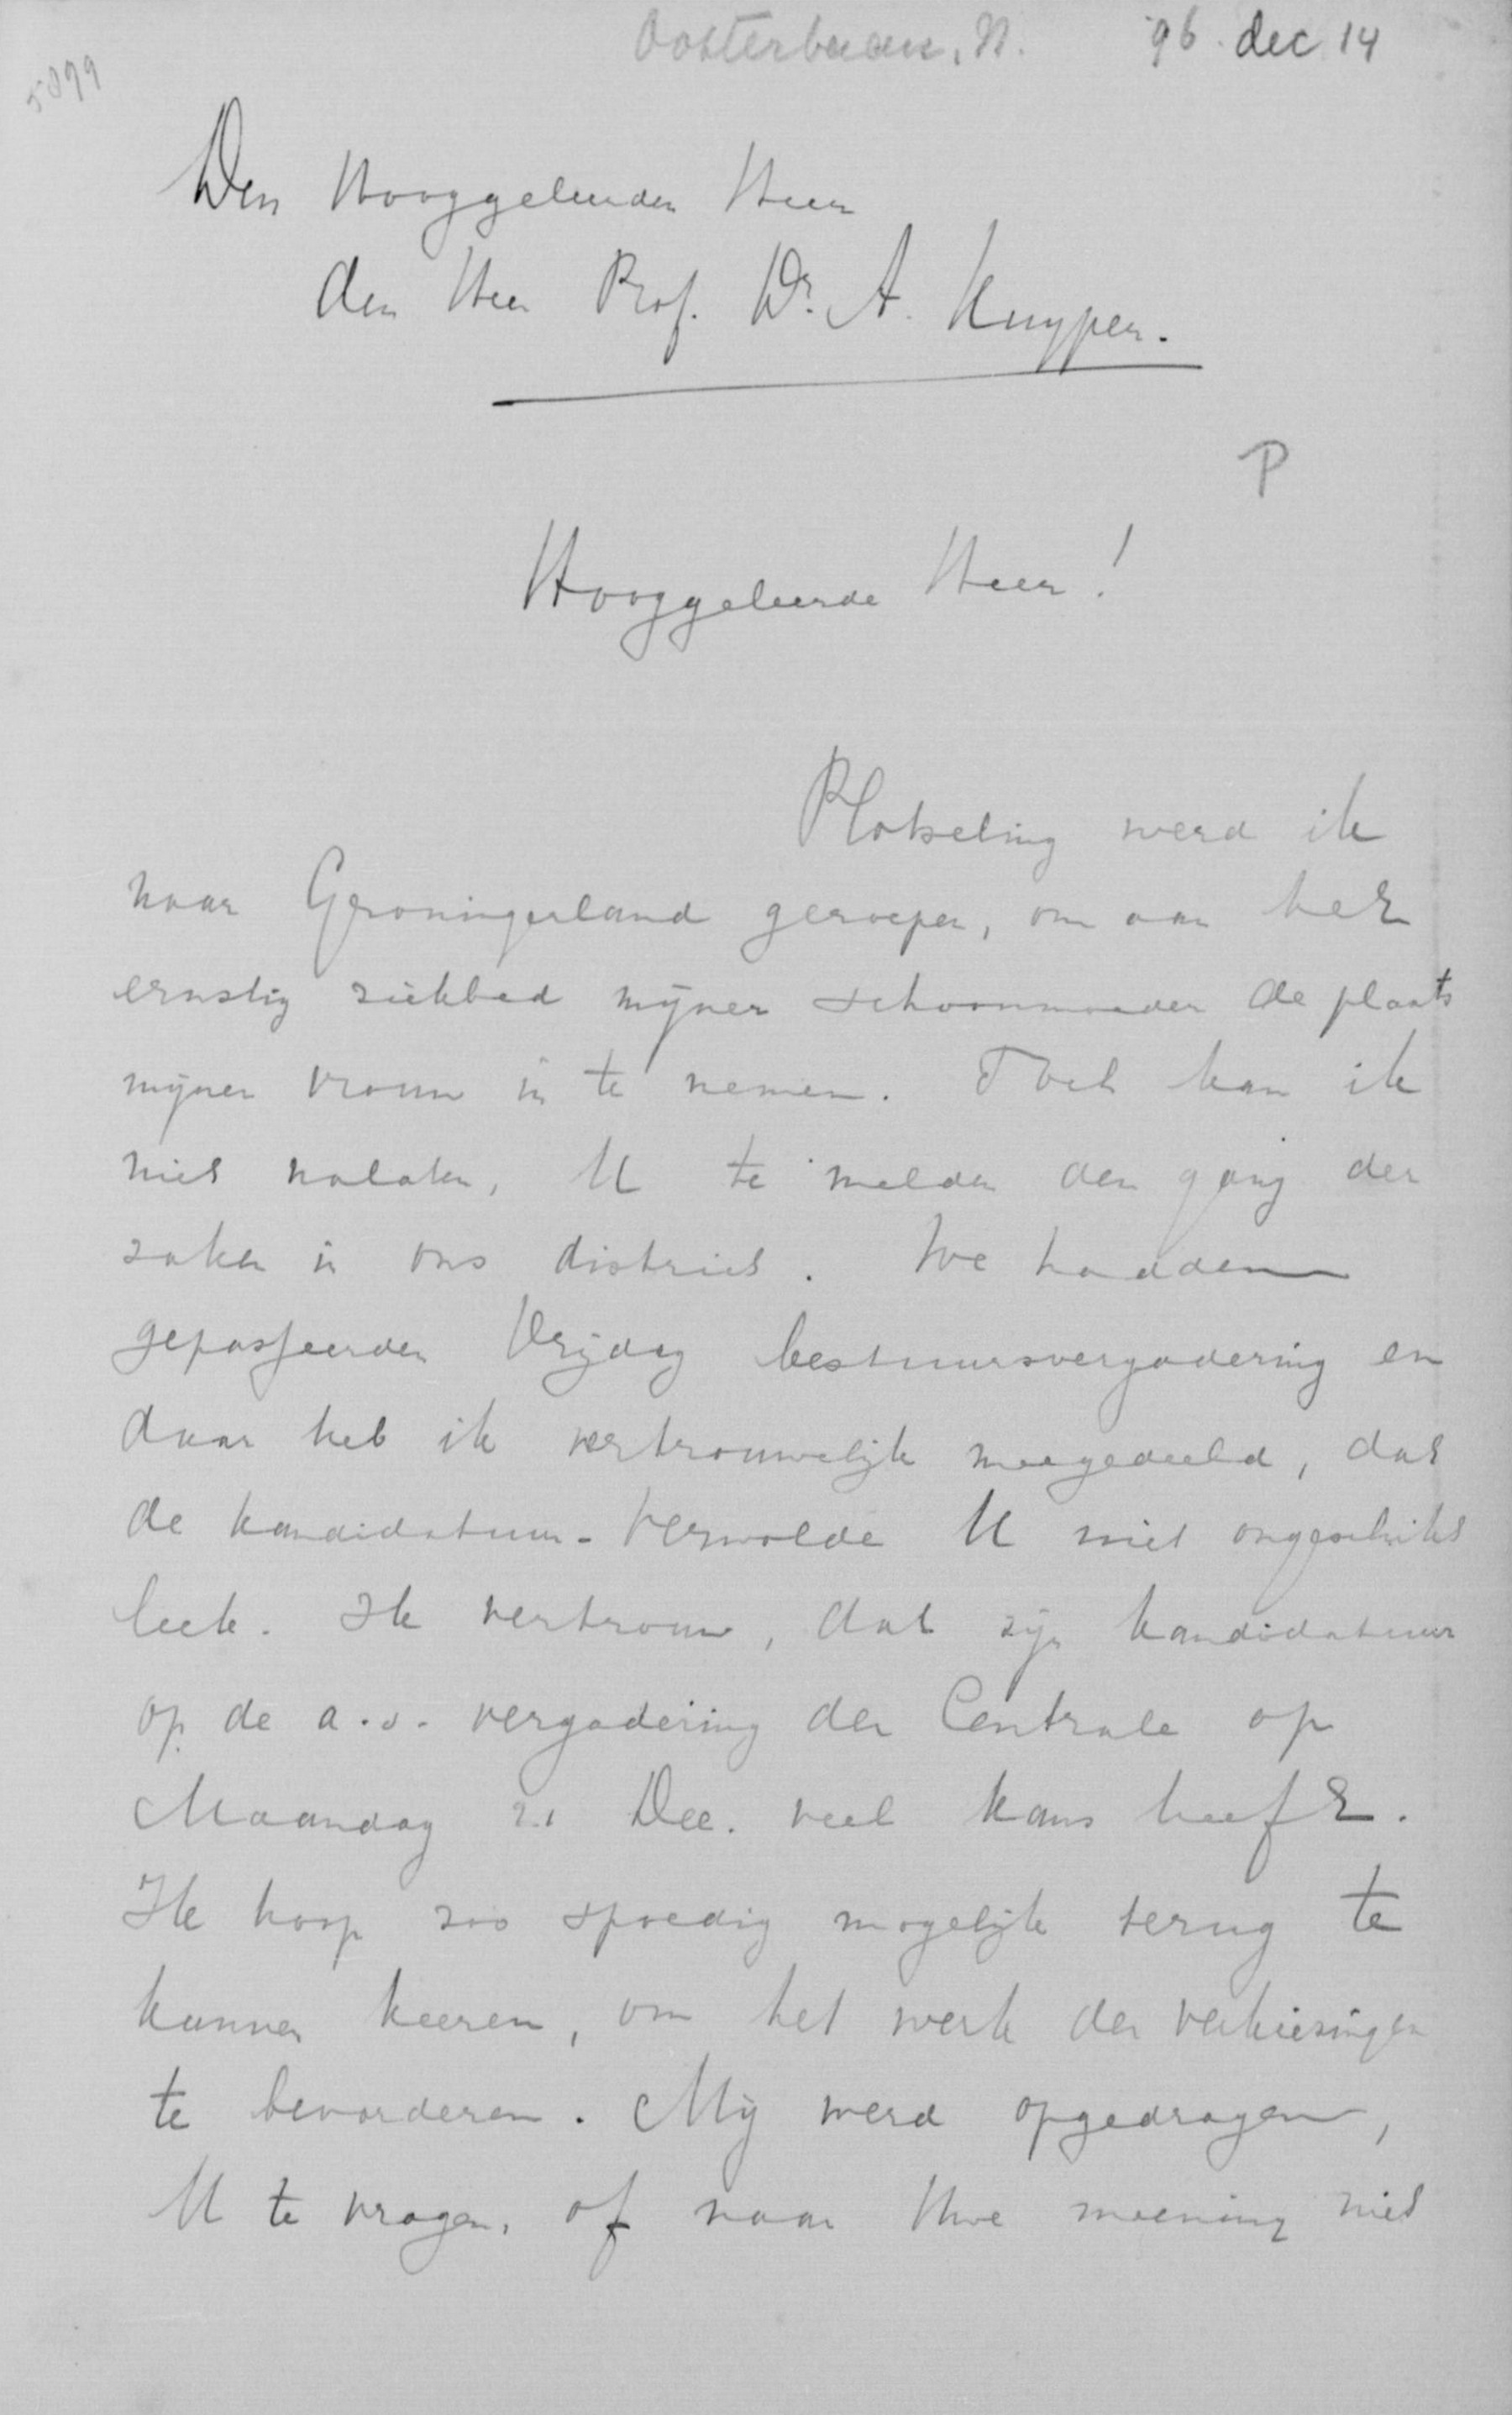 Oosterbaan, N. '96. dec 14
5099
Den Hooggeleerden Heer
den Heer Prof. Dr. A. Kuyper.
P
Hooggeleerde Heer!
Plotseling werd ik
naar Groningerland geroepen, om aan het
ernstig ziekbed mijner schoonmoeder de plaats
mijner vrouw in te nemen. Toch kan ik
niet nalaten, U te melden den gang der
zaken in ons district. We hadden
gepasseerden Vrijdag bestuursvergadering en
daar heb ik vertrouwelijk meegedeeld, dat
de kandidatuur-Verwolde U niet ongeschikt
leek. Ik vertrouw, dat zijn kandidatuur
op de a.s. vergadering der Centrale op
Maandag 21 Dec. veel kans heeft.
Ik hoop zoo spoedig mogelijk terug te
kunnen keeren, om het werk der verkiezingen
te bevorderen. Mij werd opgedragen,
U te vragen, of naar Uwe meening niet